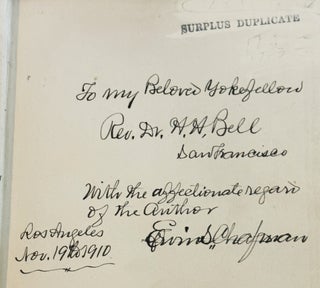 SURPLUS DUPLICATE
To my Beloved Yokefellow
Rev. Dr. H. H. Bell
San Francisco
With the affectionate regard
of the Author
Los Angeles
Nov. 19th 1910
Ervin S. Chapman